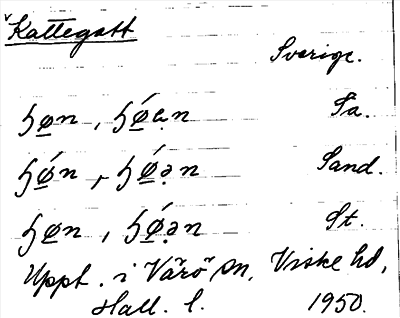 Kattegatt
Sverige.
hø̱n, hǿ̱ạn Ta.
hǿ̱n, hǿ̱ə̣n Sand.
hø̱n, hǿ̱ə̣n St.
Uppt. i Värö sn, Viske hd,
Hall. l. 1950.